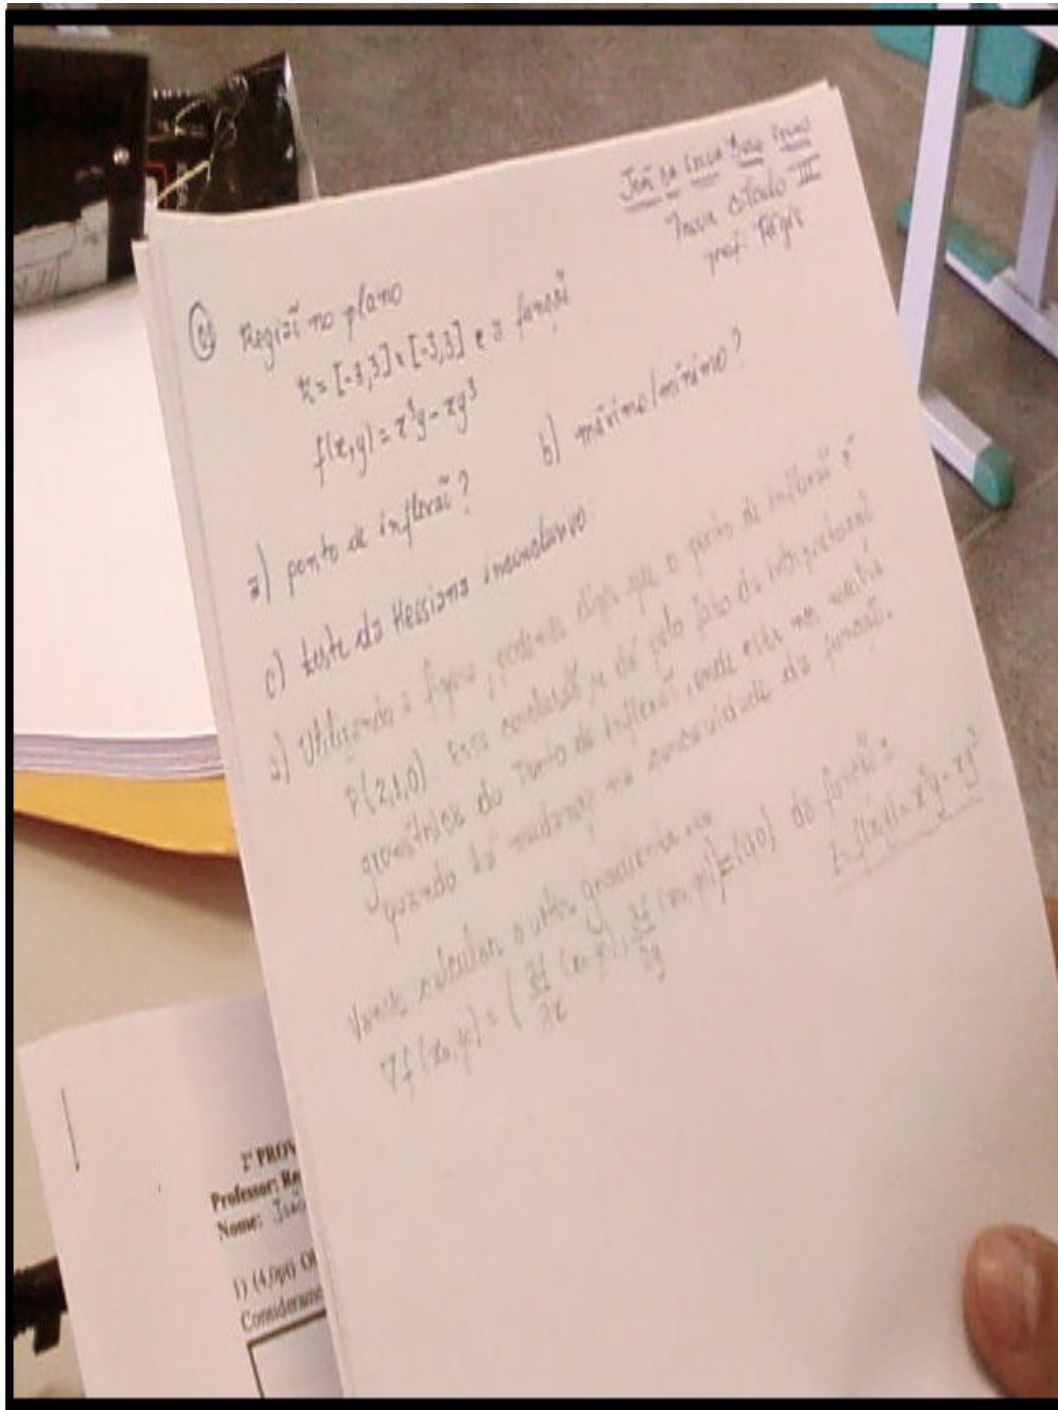 Prova Cálculo III
prof. Régis
Região no plano
R = [-3,3] x [-3,3] e a função
f(x,y) = x³y - xy³
a) ponto de inflexão? b) máximo/mínimo?
c) teste da Hessiana inconclusivo.
a) Utilizando a figura, podemos dizer que o ponto de inflexão é
P(2,1,0). Essa conclusão se dá pelo fato da interpretação
geométrica do ponto de inflexão, onde este nos mostra
quando há mudança na concavidade da função.
Vamos calcular o vetor gradiente da função:
∇f(x₀,y₀) = (∂f/∂x (x₀,y₀), ∂f/∂y (x₀,y₀)) = (0,0)
f(x,y) = x³y - xy³
2ª PROV
Professor: Re
Nome: João
1) (4,0pt)
Considerand